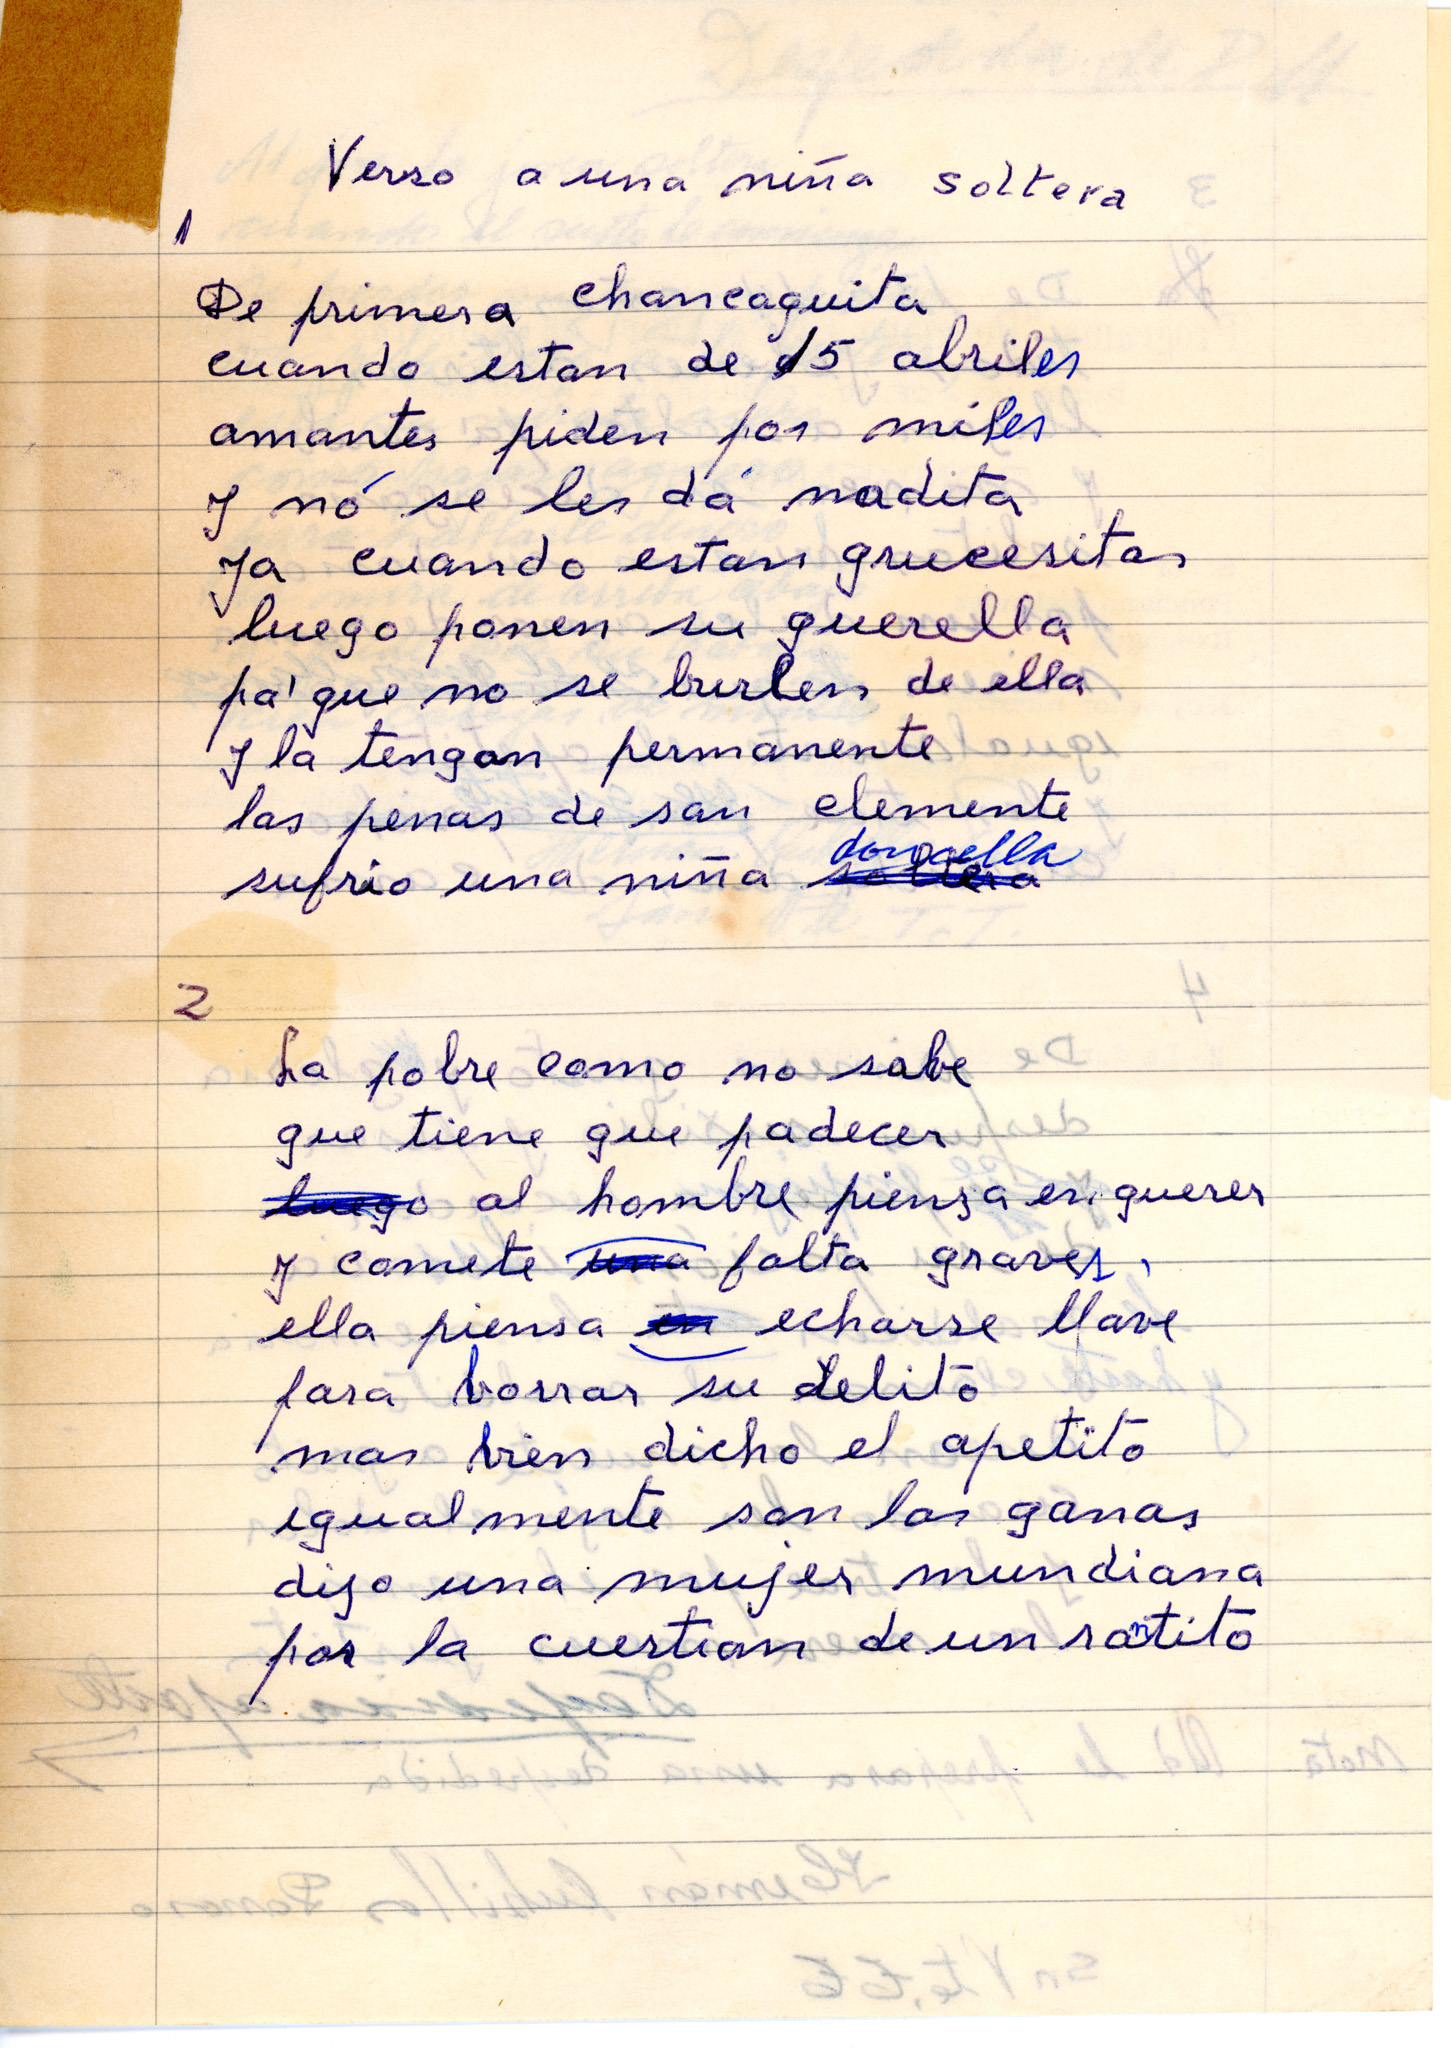 Verso a una niña soltera
1
De primera chancaquita
cuando estan de 15 abriles
amantes piden por miles
y nó se les dá nadita
ya cuando estan grucesitas
luego ponen su querella
pa' que no se burlen de ella
y la tengan permanente
las penas de san clemente
sufrio una niña soltera doncella
2
La pobre como no sabe
que tiene que padecer
luego al hombre piensa en querer
y comete una falta graves,
ella piensa en echarse llave
para borrar su delito
mas bien dicho el apetito
igualmente son las ganas
digo una mujer mundiana
por la cuestion de un ratito